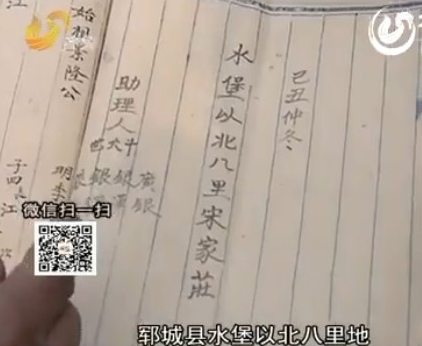 己丑仲冬
水堡以北八里宋家莊
助理人
始祖景隆公
明季
子四長江
江
微信扫一扫
郓城县水堡以北八里地